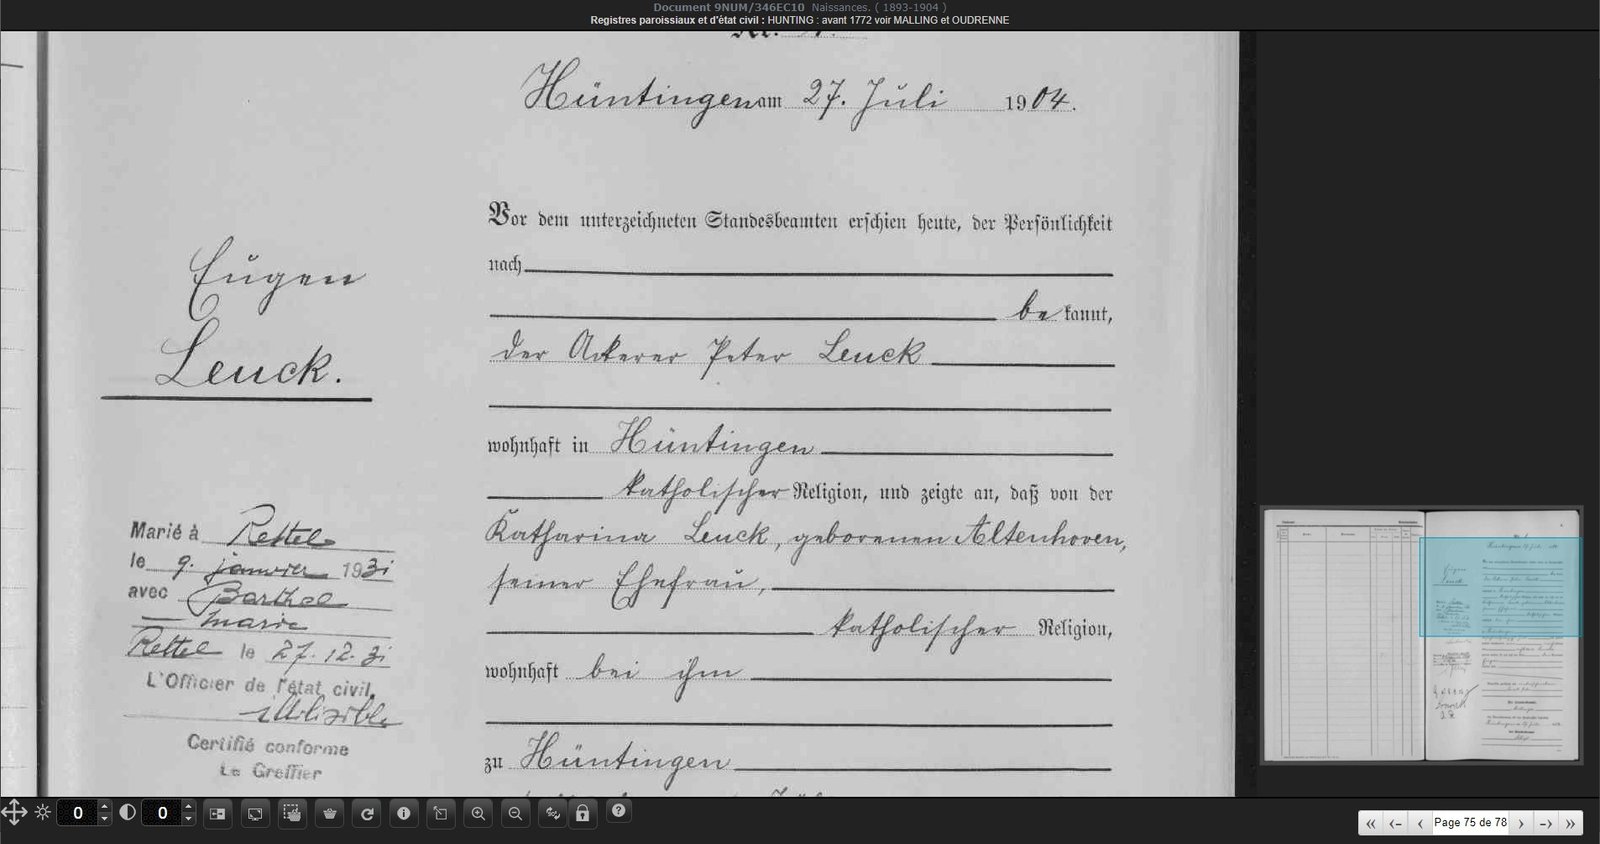 Document 9NUM/346EC10 Naissances. ( 1893-1904 )
Registres paroissiaux et d'état civil : HUNTING : avant 1772 voir MALLING et OUDRENNE
Nr.
Hüntingen am 27. Juli 1904.
Vor dem unterzeichneten Standesbeamten erschien heute, der Persönlichkeit
nach
be kannt,
der Ackerer Peter Leuck
wohnhaft in Hüntingen
katholischer Religion, und zeigte an, daß von der
Katharina Leuck, geborenen Altenhoven,
seiner Ehefrau,
katholischer Religion,
wohnhaft bei ihm
zu Hüntingen
Eugen
Leuck.
Marié à Rettel
le 9. janvier 1931
avec Barthel
Marie
Rettel le 27.12.31
L'Officier de l'état civil,
illisible
Certifié conforme
Le Greffier
0
0
Page 75 de 78